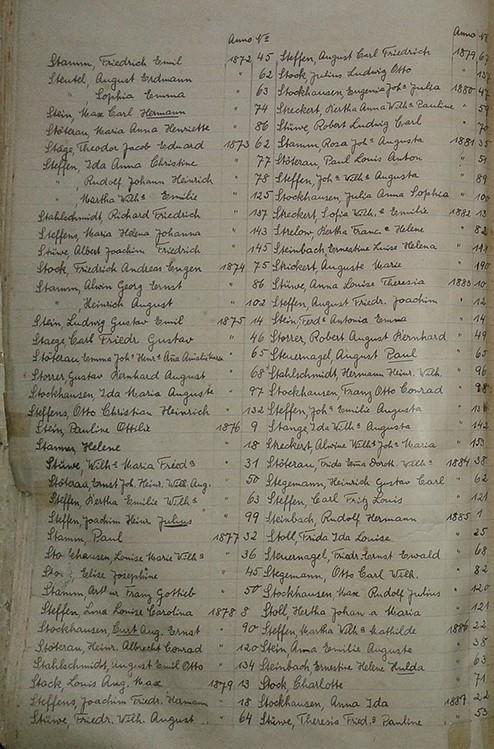 Anno №
Stamm, Friedrich Emil 1872 45
Steutel, August Erdmann " 62
Sophia Emma " 63
Stein, Max Carl Hermann " 74
Stöterau Maria Anna Henriette " 86
Stäge, Theodor Jacob Eduard 1873 62
Steffen, Ida Anna Christine " 77
" Rudolf Johann Heinrich " 78
" Martha Wilhᵃ Emilie " 125
Stahlschmidt, Richard Friedrich " 137
Steffens, Maria Helena Johanna " 143
Stüwe, Albert Joachim Friedrich " 145
Stock, Friedrich Andreas Eugen 1874 75
Stamm, Alwin Georg Ernst " 86
" Heinrich August " 102
Stein, Ludwig Gustav Emil 1875 14
Staege, Carl Friedr Gustav " 46
Stöterau, Emma Johᵃ Henrᵗᵉ " 65
Storrer, Gustav Bernhard August " 68
Stockhausen, Ida Maria Auguste " 97
Steffens, Otto Christian Heinrich " 132
Stein, Pauline Ottilie 1876 9
Stamm, Helene " 18
Stüwe, Wilhᵃ Maria Friedᵃ " 31
Stöterau, Ernst Joh. Heinr. Wilh. Aug. " 50
Steffen, Bertha Emilie Wilhᵃ " 63
Steffen, Joachim Heinr. Julius " 99
Stamm, Paul 1877 32
Stockhausen, Louise Marie Wilhᵃ " 36
Elise Josephine " 45
Stamm Franz Gottlieb " 50
Steffen, Lina Louise Carolina 1878 8
Stockhausen, Curt Aug. Ernst " 90
Stöterau, Heinr. Albrecht Conrad " 120
Stahlschmidt, August Emil Otto " 134
Stock, Louis Aug. Max 1879 13
Steffens, Joachim Friedr. Hermann " 18
Stüwe, Friedr. Wilh. August " 64
Anno №
Steffen, August Carl Friedrich 1879
Stock, Julius Ludwig Otto "
Stockhausen, Eugenia Johᵃ Julia 1880 47
Streckert, Bertha Anna Wilhᵃ Pauline " 59
Stüwe, Robert Ludwig Carl "
Stamm, Rosa Johᵃ Augusta 1881 35
Stöterau, Paul Louis Anton " 51
Steffen, Johᵃ Wilhᵃ Augusta " 89
Stockhausen, Julia Anna Sophia " 100
Streckert, Sofia Wilhᵃ Emilie 1882 13
Strelow, Bertha Francᵃ Helene " 82
Steinbach, Ernestine Luise Helena "
Strickert, Auguste Marie " 190
Stüwe, Anna Louise Theresia 1883 10
Steffen, August Friedr. Joachim " 12
Stein, Ferdᵃ Antonia Emma " 14
Storrer, Robert August Bernhard " 49
Steuernagel, August Paul " 65
Stahlschmidt, Hermann Heinr. Wilh. " 96
Stockhausen, Franz Otto Conrad " 98
Steffen, Johᵃ Emilie Augusta "
Stange Ida Wilhᵃ Augusta " 142
Streckert, Alwine Wilhᵃ Johᵃ Maria "
Stöterau, Frida Emᵃ Doroth. Wilhᵃ 1884 38
Stegemann, Heinrich Gustav Carl " 62
Steffen, Carl Fritz Louis " 121
Steinbach, Rudolf Hermann 1885 1
Stoll, Frida Ida Louise " 25
Steuernagel, Friedr. Ernst Ewald " 68
Stegemann, Otto Carl Wilh. " 82
Stockhausen, Max Rudolf Julius " 120
Stoll, Hertha Johanna Maria " 121
Steffen, Martha Wilhᵃ Mathilde 1886 22
Stein, Anna Emilie Auguste " 38
Steinbach, Ernestine Helene Hulda " 63
Stock, Charlotte " 71
Stockhausen, Anna Ida 1887 22
Stüwe, Theresia Friedᵃ Pauline " 53